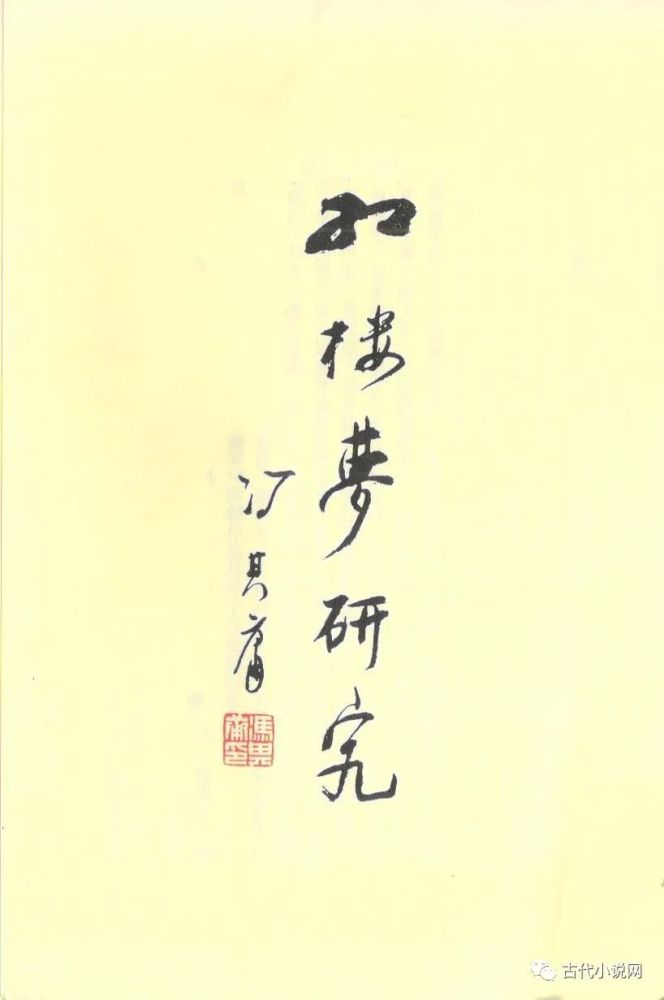 红楼梦研究
冯其庸
冯其庸印
古代小说网